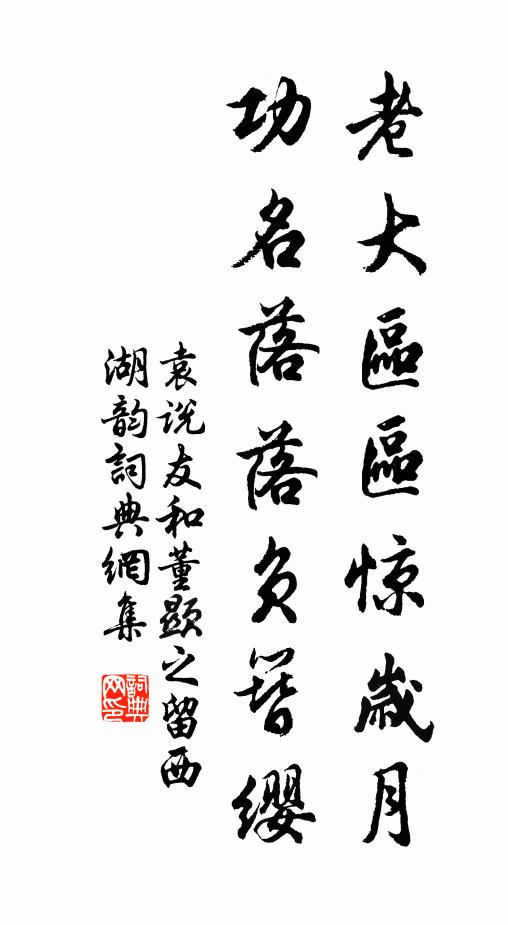 老大區區惊歳月
功名落落負簪纓
袁说友和董顯之留西
湖韵詞典網集
詞典网印